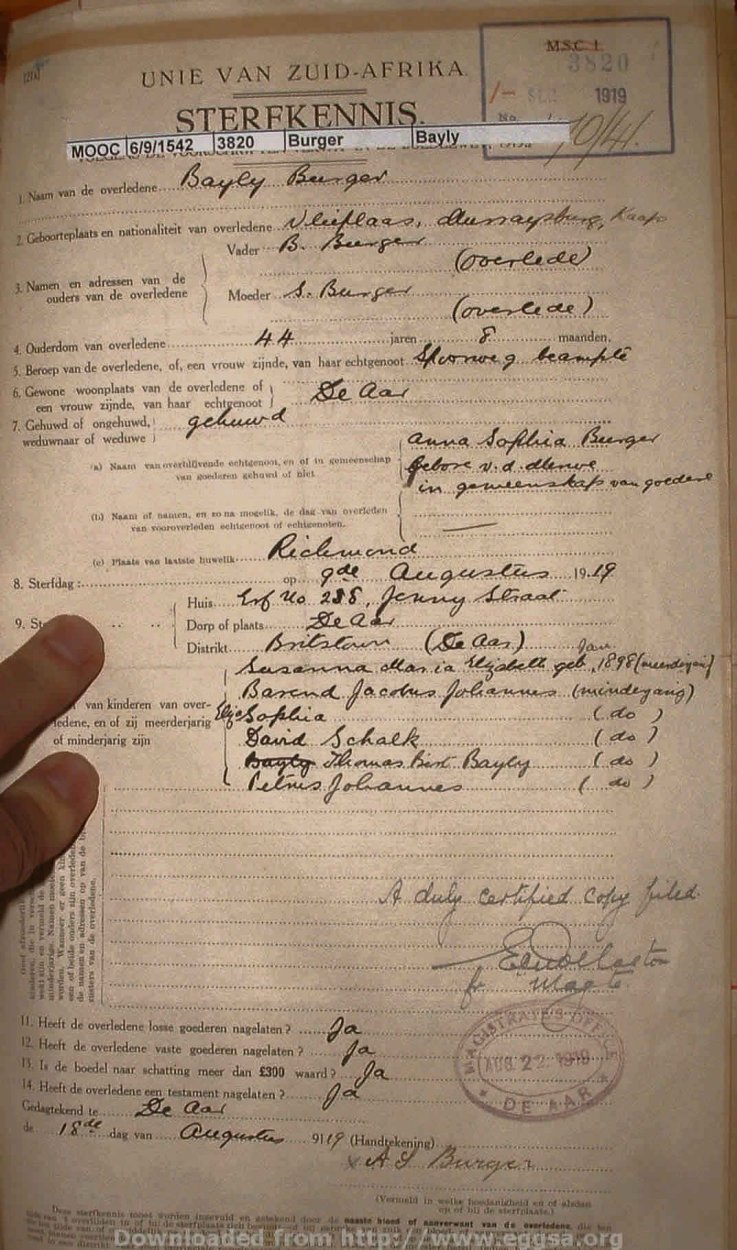 M.S.C. 1.
3820
UNIE VAN ZUID-AFRIKA
1/-
1919
STERFKENNIS.
No.
10/41.
MOOC 6/9/1542 3820 Burger Bayly
1. Naam van de overledene Bayly Burger
2. Geboorteplaats en nationaliteit van overledene Vleiplaas, Murraysburg, Kaap
3. Namen en adressen van de ouders van de overledene
Vader B. Burger
(overlede)
Moeder S. Burger
(overlede)
4. Ouderdom van overledene 44 jaren 8 maanden.
5. Beroep van de overledene, of, een vrouw zijnde, van haar echtgenoot Spoorweg beampte
6. Gewone woonplaats van de overledene of
een vrouw zijnde, van haar echtgenoot De Aar
7. Gehuwd of ongehuwd,
weduwnaar of weduwe gehuwd
(a) Naam van overblijvende echtgenoot, en of in gemeenschap
van goederen gehuwd of niet
Anna Sophia Burger
gebore v. d. Merwe
in gemeenskap van goedere
(b) Naam of namen, en zo na mogelik, de dag van overleden
van vooroverleden echtgenoot of echtgenoten.
(c) Plaats van laatste huwelik Richmond
8. Sterfdag: op 9de Augustus 1919
9. St
Huis Erf No 288, Jenny Straat
Dorp of plaats De Aar
Distrikt Britstown (De Aar)
van kinderen van over-
ledene, en of zij meerderjarig
of minderjarig zijn
Jan
Susanna Maria Elizabeth geb. 1898 (meerderjarig)
Barend Jacobus Johannes (minderjarig)
Sophia (do)
David Schalk (do)
Bayly Thomas Birt Bayly (do)
Petrus Johannes (do)
A duly certified copy filed
for Magte
11. Heeft de overledene losse goederen nagelaten? Ja
12. Heeft de overledene vaste goederen nagelaten? Ja
13. Is de boedel naar schatting meer dan £300 waard? Ja
14. Heeft de overledene een testament nagelaten? Ja
MAGISTRATE'S OFFICE
AUG 22 1919
DE AAR
Gedagtekend te De Aar
de 18de dag van Augustus 9119 (Handtekening)
x A S Burger
(Vermeld in welke hoedanigheid en of al dan
op of bij de sterfplaats.)
Deze sterfkennis moet worden ingevuld en getekend door de naaste bloed of aanverwant van de overledene, die ten
Downloaded from http://www.eggsa.org